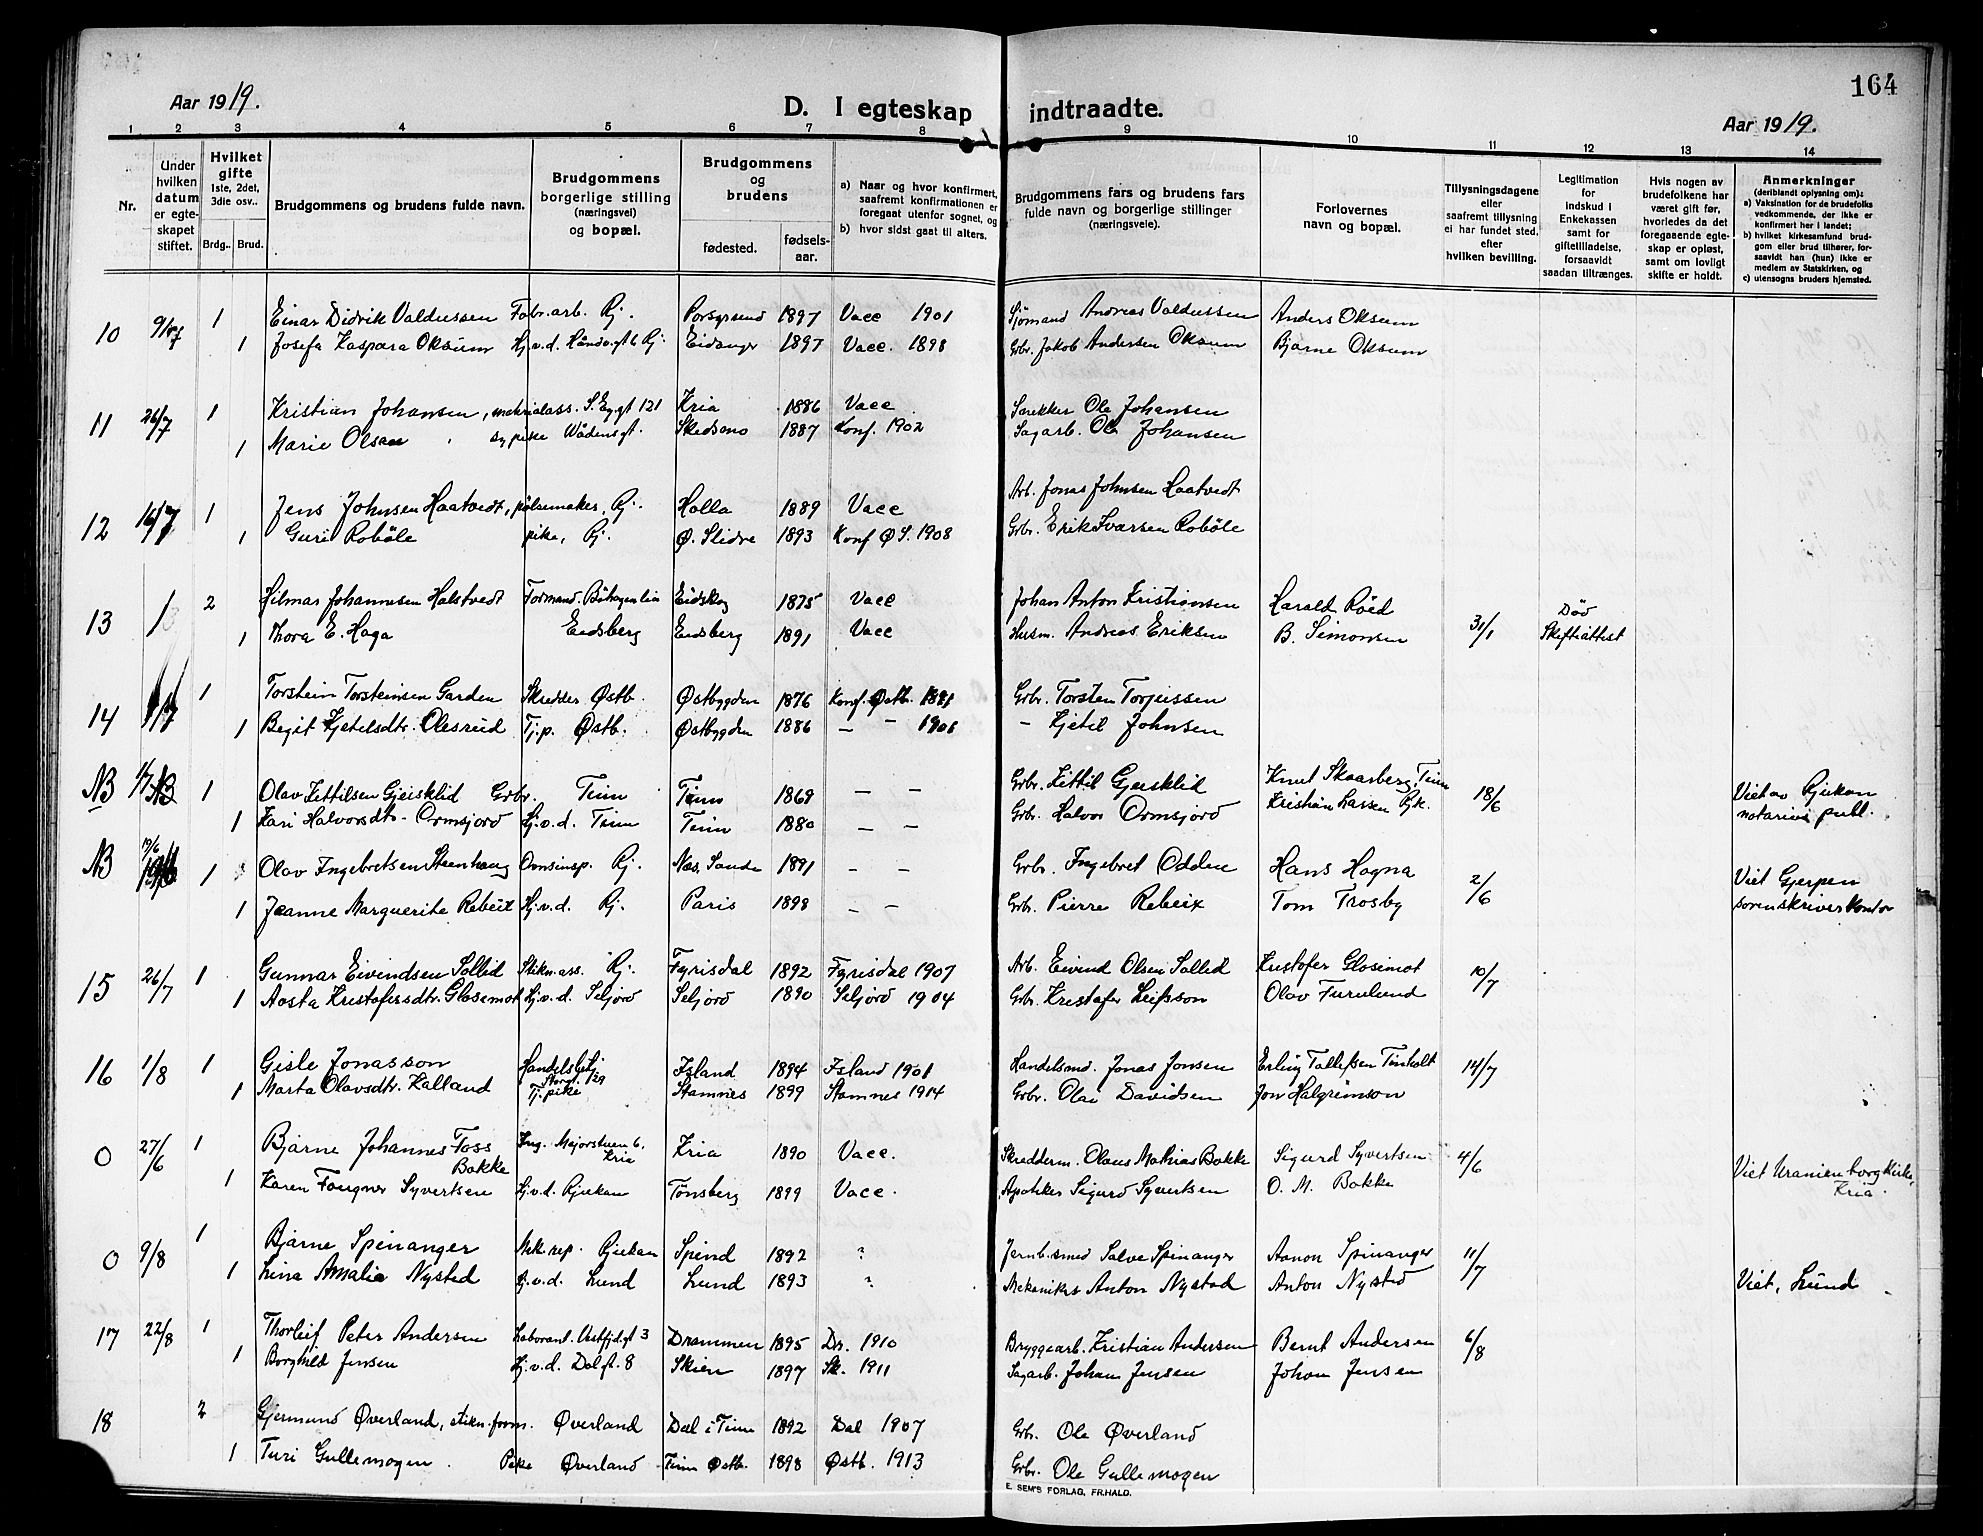 164
Aar 1919.
D. I egteskap indtraadte.
Aar 1919.
1 2 3 4 5 6 7 8 9 10 11 12 13 14
Nr.
Under hvilken datum er egteskapet stiftet.
Hvilket gifte
1ste, 2det, 3die osv..
Brdg.. Brud.
Brudgommens og brudens fulde navn.
Brudgommens borgerlige stilling (næringsvei) og bopæl.
Brudgommens og brudens
fødested.
fødsels-aar.
a) Naar og hvor konfirmert, saafremt konfirmationen er foregaat utenfor sognet, og
b) hvor sidst gaat til alters.
Brudgommens fars og brudens fars fulde navn og borgerlige stillinger (næringsveie).
Forlovernes navn og bopæl.
Tillysningsdagene eller saafremt tillysning ei har fundet sted, efter hvilken bevilling.
Legitimation for indskud i Enkekassen samt for giftetilladelse, forsaavidt saadan tiltrænges.
Hvis nogen av brudefolkene har været gift før, hvorledes da det foregaaende egteskap er opløst, samt om lovligt skifte er holdt.
Anmerkninger
(deriblandt oplysning om):
a) Vaksination for de brudefolks vedkommende, der ikke er konfirmert her i landet;
b) hvilket kirkesamfund brudgom eller brud tilhører, forsaavidt han (hun) ikke er medlem av Statskirken, og
c) utensogns bruders hjemsted.
10 9/7 1 Einar Didrik Valdussen Fabr.arb. Rj. Porsgrund 1897 Vacc 1901 Sjømand Andreas Valdussen Anders Oksum
1 Josefa Kaspara Oksum Hj.v.d. Rj. Eidanger 1897 Vacc. 1898 Grbr. Jakob Andersen Oksum Bjarne Oksum
11 26/7 1 Kristian Johansen, S.Eygt 121 Kria 1886 Vacc Snekker Ole Johansen
1 Marie Olsen sypike Skedsmo 1887 Konf. 1902 Sagarb. Ole Johansen
12 16/7 1 Jens Johnsen Haatvedt, pølsemaker, Rj. Holla 1889 Vacc Arb. Jonas Johnsen Haatvedt
1 Guri Robøle pike, Rj. Ø. Slidre 1893 Konf Ø S. 1908 Grbr. Erik Ivarsen Robøle
13 1 2 Hilmar Johannesen Halstvedt Formand. Eidskog 1875 Vacc Johan Anton Kristiansen Harald Röed 31/1 Död
1 Thora E. Haga Eidsberg Eidsberg 1891 Vacc Husm. Andreas Eriksen B. Simonsen Skifteattest
14 1 Torstein Torsteinsen Garden Skredder Østb. Østbygden 1876 Konf. Østb. 1891 Grbr. Torsten Torjussen
1 Begit Kjetelsdtr. Olesrud Tj.p. Østb. Østbygden 1886 — — 1901 — Kjetil Johnsen
NB 1/7 1 Olav Kittilsen Gjeisklid Grbr. Tinn Tinn 1869 — — Grbr. Kittil Gjeisklid Knut Skaarberg, Tinn 18/6 Viet av Rjukan
1 Kari Halvorsdtr. Ormsjord Hj.v.d. Tinn Tinn 1880 — — Grbr. Halvor Ormsjord Kristian Lassen Rjk. notarius publ.
NB 19/6 1 Olav Ingebretsen Steenhaug Rj. Nes. Sande 1891 — — Grbr. Ingebret Odden Hans Hagna 2/6 Viet Gjerpen
1 Jeanne Marguerite Rebeix Hj.v.d. Rj. Paris 1898 — — Grbr. Pierre Rebeix Tom Trosby sorenskriverkontor
15 26/7 1 Gunnar Eivindsen Sollid Stikn.ass. Rj. Fyrisdal 1892 Fyrisdal 1907 Arb. Eivind Olsen Sollid Kristofer Glosimot 10/7
1 Aosta Kristofersdtr. Glosimot Hj.v.d. Seljord Seljord 1890 Seljord 1904 Grbr. Kristofer Leifsson Olav Furulund
16 1/8 1 Gisle Jonasson Handelsbetj. Storgt. 129 Island 1894 Island 1901 Handelsmd. Jonas Jonsen Erling Tallefsen Tinholt 14/7
1 Marta Olavsdtr. Kalland Tj.pike Stamnes 1899 Stamnes 1914 Grbr. Olai Davidsen Jon Halgrimson
0 27/6 1 Bjarne Johannes Foss Bakke Ing. Majorstuen 6. Kria Kria 1890 Vacc. Skredderm. Olaus Mathias Bakke Sigurd Syvertsen 4/6 Viet Uranienborg Kirke, Kria.
1 Karen Fougner Syvertsen Hj.v.d. Rjukan Tønsberg 1899 Vacc. Apotheker Sigurd Syvertsen O. M. Bakke
0 9/8 1 Bjarne Spinanger Mek.rep. Rjukan Spind 1892 ? Jernb.smed Salve Spinanger Aanon Spinanger 11/7
1 Lina Amalia Nysted Hj.v.d. Lund Lund 1893 ? Mekaniker Anton Nysted Anton Nysted Viet, Lund
17 22/8 1 Thorleif Peter Andersen Laborant. Vestfjdgt 3 Drammen 1895 Dr. 1910 Bryggearb. Kristian Andersen Bernt Andersen 6/8
1 Borghild Jensen Hj.v.d. Dalgt. 8 Skien 1897 Sk. 1911 Sagarb. Johan Jensen Johan Jensen
18 2 Gjermund Øverland, stikn.form. Øverland Dal i Tinn 1892 Dal 1907 Grbr. Ole Øverland
1 Turi Gullemogen. Pike Øverland Tinn Østb. 1898 Østb. 1913 Grbr. Ole Gullemogen
E. SEM'S FORLAG, FR.HALD.